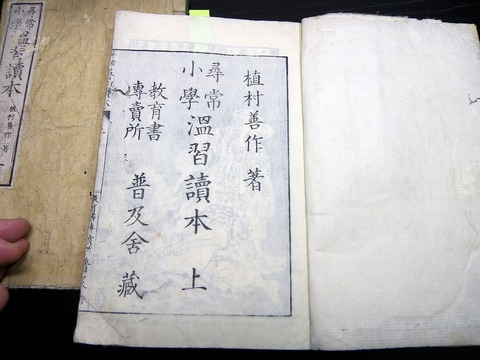 植村善作 著
尋常
小學
温習讀本 上
教育書
專賣所
普及舍 藏
尋常
小學
温習讀本
植村善作 著